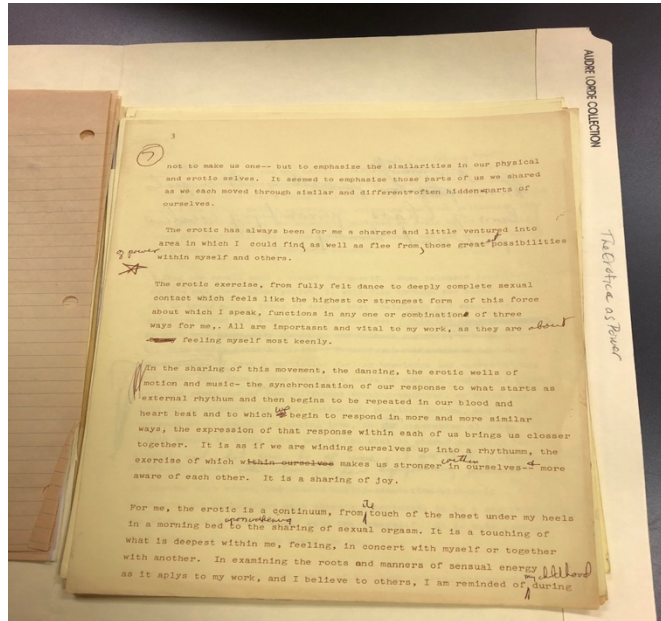 AUDRE LORDE COLLECTION
The Erotica as Power
3
not to make us one-- but to emphasize the similarities in our physical
and erotic selves. It seemed to emphasize those parts of us we shared
as we each moved through similar and different-often hidden-parts of
ourselves.
The erotic has always been for me a charged and little ventured into
area in which I could find, as well as flee from, those great est possibilities
of power
within myself and others.
The erotic exercise, from fully felt dance to deeply complete sexual
contact which feels like the highest or strongest form of this force
about which I speak, functions in any one or combinations of three
ways for me,. All are importasnt and vital to my work, as they are about
feeling myself most keenly.
In the sharing of this movement, the dancing, the erotic wells of
motion and music- the synchronization of our response to what starts as
external rhythum and then begins to be repeated in our blood and
heart beat and to which we begin to respond in more and more similar
ways, the expression of that response within each of us brings us closser
together. It is as if we are winding ourselves up into a rhythumm, the
exercise of which within ourselves makes us stronger within ourselves-- & more
aware of each other. It is a sharing of joy.
For me, the erotic is a continuum, from the touch of the sheet under my heels
in a morning bed to the sharing of sexual orgasm. It is a touching of
what is deepest within me, feeling, in concert with myself or together
with another. In examining the roots and manners of sensual energy
as it aplys to my work, and I believe to others, I am reminded of my childhood during